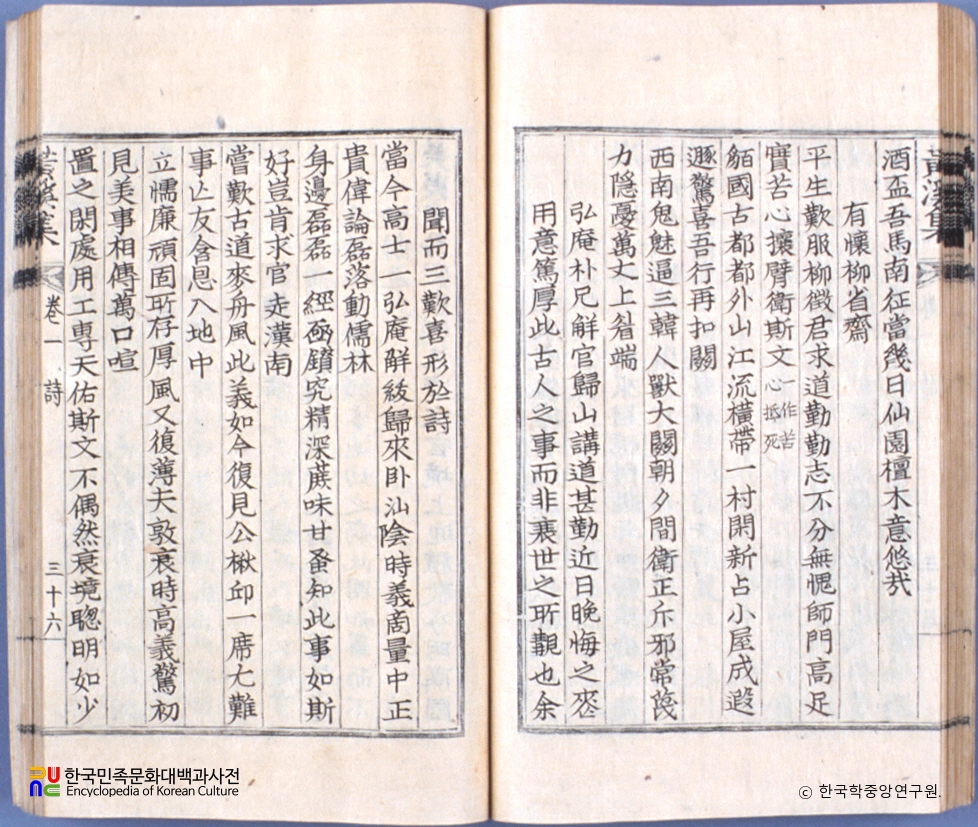 酒盃吾馬南征當幾日仙園檀木意悠哉
有懷柳省齋
平生歎服柳徵君求道勤勤志不分無愧師門高足
寶苦心攘臂衛斯文心作苦抵死
貊國古都都外山江流橫帶一村閑新占小屋成遐
遯驚喜吾行再扣關
西南鬼魅逼三韓人獸大關朝々間衛正斥邪常
力隱憂萬丈上眉端
弘庵朴尺解官歸山講道甚勤近日晚悔之來
用意篤厚此古人之事而非衰世之所覩也余
聞而三歎喜形於詩
當今高士一弘庵解紱歸來卧汕陰時義商量中正
貴偉論磊落動儒林
身邊磊磊一經函鑽究精深蔗味甘蚤知此事如斯
好豈肯求官走漢南
嘗歎古道來舟風此義如今復見公楸卹一席尤難
事亡友含恩入地中
立懦廉頑固所存厚風又復薄夫敦衰時高義驚初
見美事相傳萬口喧
置之閑處用工專天佑斯文不偶然衰境聰明如少
卷一 詩
三十六
한국민족문화대백과사전
Encyclopedia of Korean Culture
ⓒ 한국학중앙연구원.